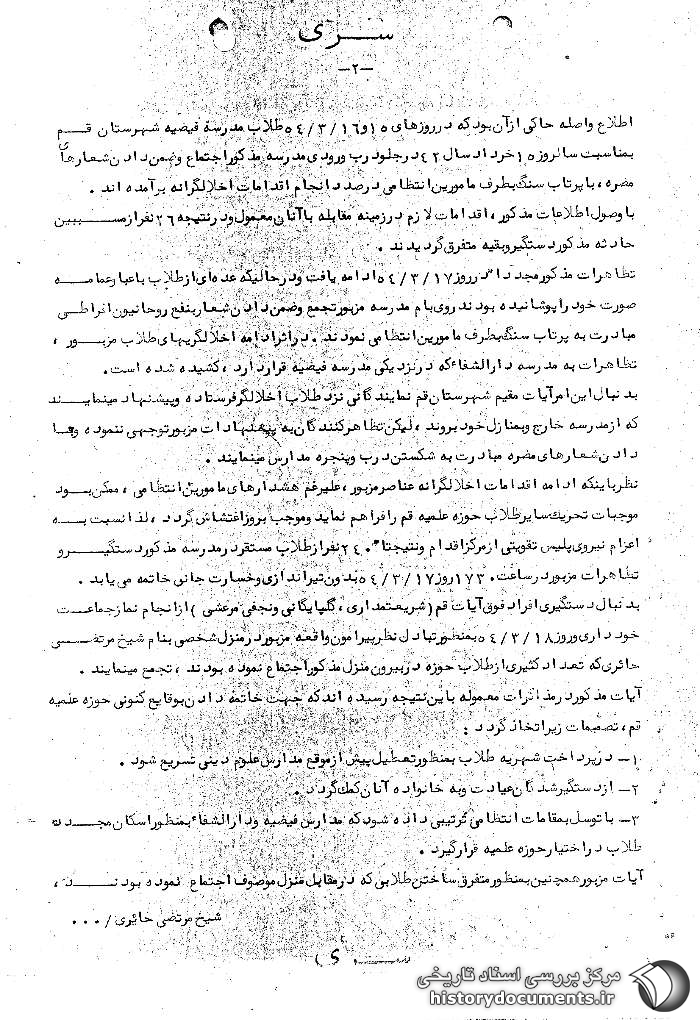 ســـری
—۲—
اطلاع واصله حاکی ازآن بود که در روزهای ۱۵و۵۴/۳/۱۶ طلاب مدرسه فیضیه شهرستان قـم
بمناسبت سالروز ۱۵ خرداد سال ۴۲ در جلو درب ورودی مدرسه مذکور اجتماع وضمن دادن شعارهای
مضره ، با پرتاب سنگ بطرف مامورین انتظامی درصدد انجام اقدامات اخلالگرانه برآمده اند .
با وصول اطلاعات مذکور ، اقدامات لازم در زمینه مقابله با آنان معمول ودر نتیجه ۲۶ نفر از مسببین
حادثه مذکور دستگیر وبقیه متفرق گردیدند .
تظاهرات مذکور مجدداً در روز ۵۴/۳/۱۷ ادامه یافت ودر حالیکه عده ای از طلاب با عبا وعمامه
صورت خود را پوشانیده بودند روی بام مدرسه مزبور تجمع وضمن دادن شعار بنفع روحانیون افراطی
مبادرت به پرتاب سنگ بطرف مامورین انتظامی نمودند . در اثر ادامه اخلالگریهای طلاب مزبور ،
تظاهرات به مدرسه دارالشفاء که در نزدیکی مدرسه فیضیه قرار دارد ، کشیده شده است .
بدنبال این امر آیات مقیم شهرستان قم نمایندگانی نزد طلاب اخلالگر فرستاده وپیشنهاد مینمایند
که از مدرسه خارج وبمنازل خود بروند ، لیکن تظاهرکنندگان به پیشنهادات مزبور توجهی ننموده وبا
دادن شعارهای مضره مبادرت به شکستن درب وپنجره مدارس مینمایند .
نظر باینکه ادامه اقدامات اخلالگرانه عناصر مزبور ، علیرغم هشدارهای مامورین انتظامی ، ممکن بود
موجبات تحریک سایر طلاب حوزه علمیه قم را فراهم نماید وموجب بروز اغتشاش گردد ، لذا نسبت به
اعزام نیروی پلیس تقویتی از مرکز اقدام ونتیجتاً ۲۴۰ نفر از طلاب مستقر در مدرسه مذکور دستگیر و
تظاهرات مزبور در ساعت ۱۷۳۰ روز ۵۴/۳/۱۷ بدون تیراندازی وخسارت جانی خاتمه می یابد .
بدنبال دستگیری افراد فوق آیات قم ( شریعتمداری ، گلپایگانی ونجفی مرعشی ) از انجام نماز جماعت
خودداری وروز ۵۴/۳/۱۸ بمنظور تبادل نظر پیرامون واقعه مزبور در منزل شخصی بنام شیخ مرتضی
حائری که تعداد کثیری از طلاب حوزه در بیرون منزل مذکور اجتماع نموده بودند ، تجمع مینمایند .
آیات مذکور در مذاکرات معموله باین نتیجه رسیده اند که جهت خاتمه دادن بوقایع کنونی حوزه علمیه
قم ، تصمیمات زیر اتخاذ گردد :
۱— در پرداخت شهریه طلاب بمنظور تعطیل پیش از موقع مدارس علوم دینی تسریع شود .
۲— از دستگیر شدگان عیادت وبه خانواده آنان کمک گردد .
۳— با توسل بمقامات انتظامی ترتیبی داده شود که مدارس فیضیه ودارالشفاء بمنظور اسکان مجدد
طلاب در اختیار حوزه علمیه قرار گیرد .
آیات مزبور همچنین بمنظور متفرق ساختن طلابی که در مقابل منزل موصوف اجتماع نموده بودند ،
شیخ مرتضی حائری / . . .
مرکز بررسی اسناد تاریخی
historydocuments.ir